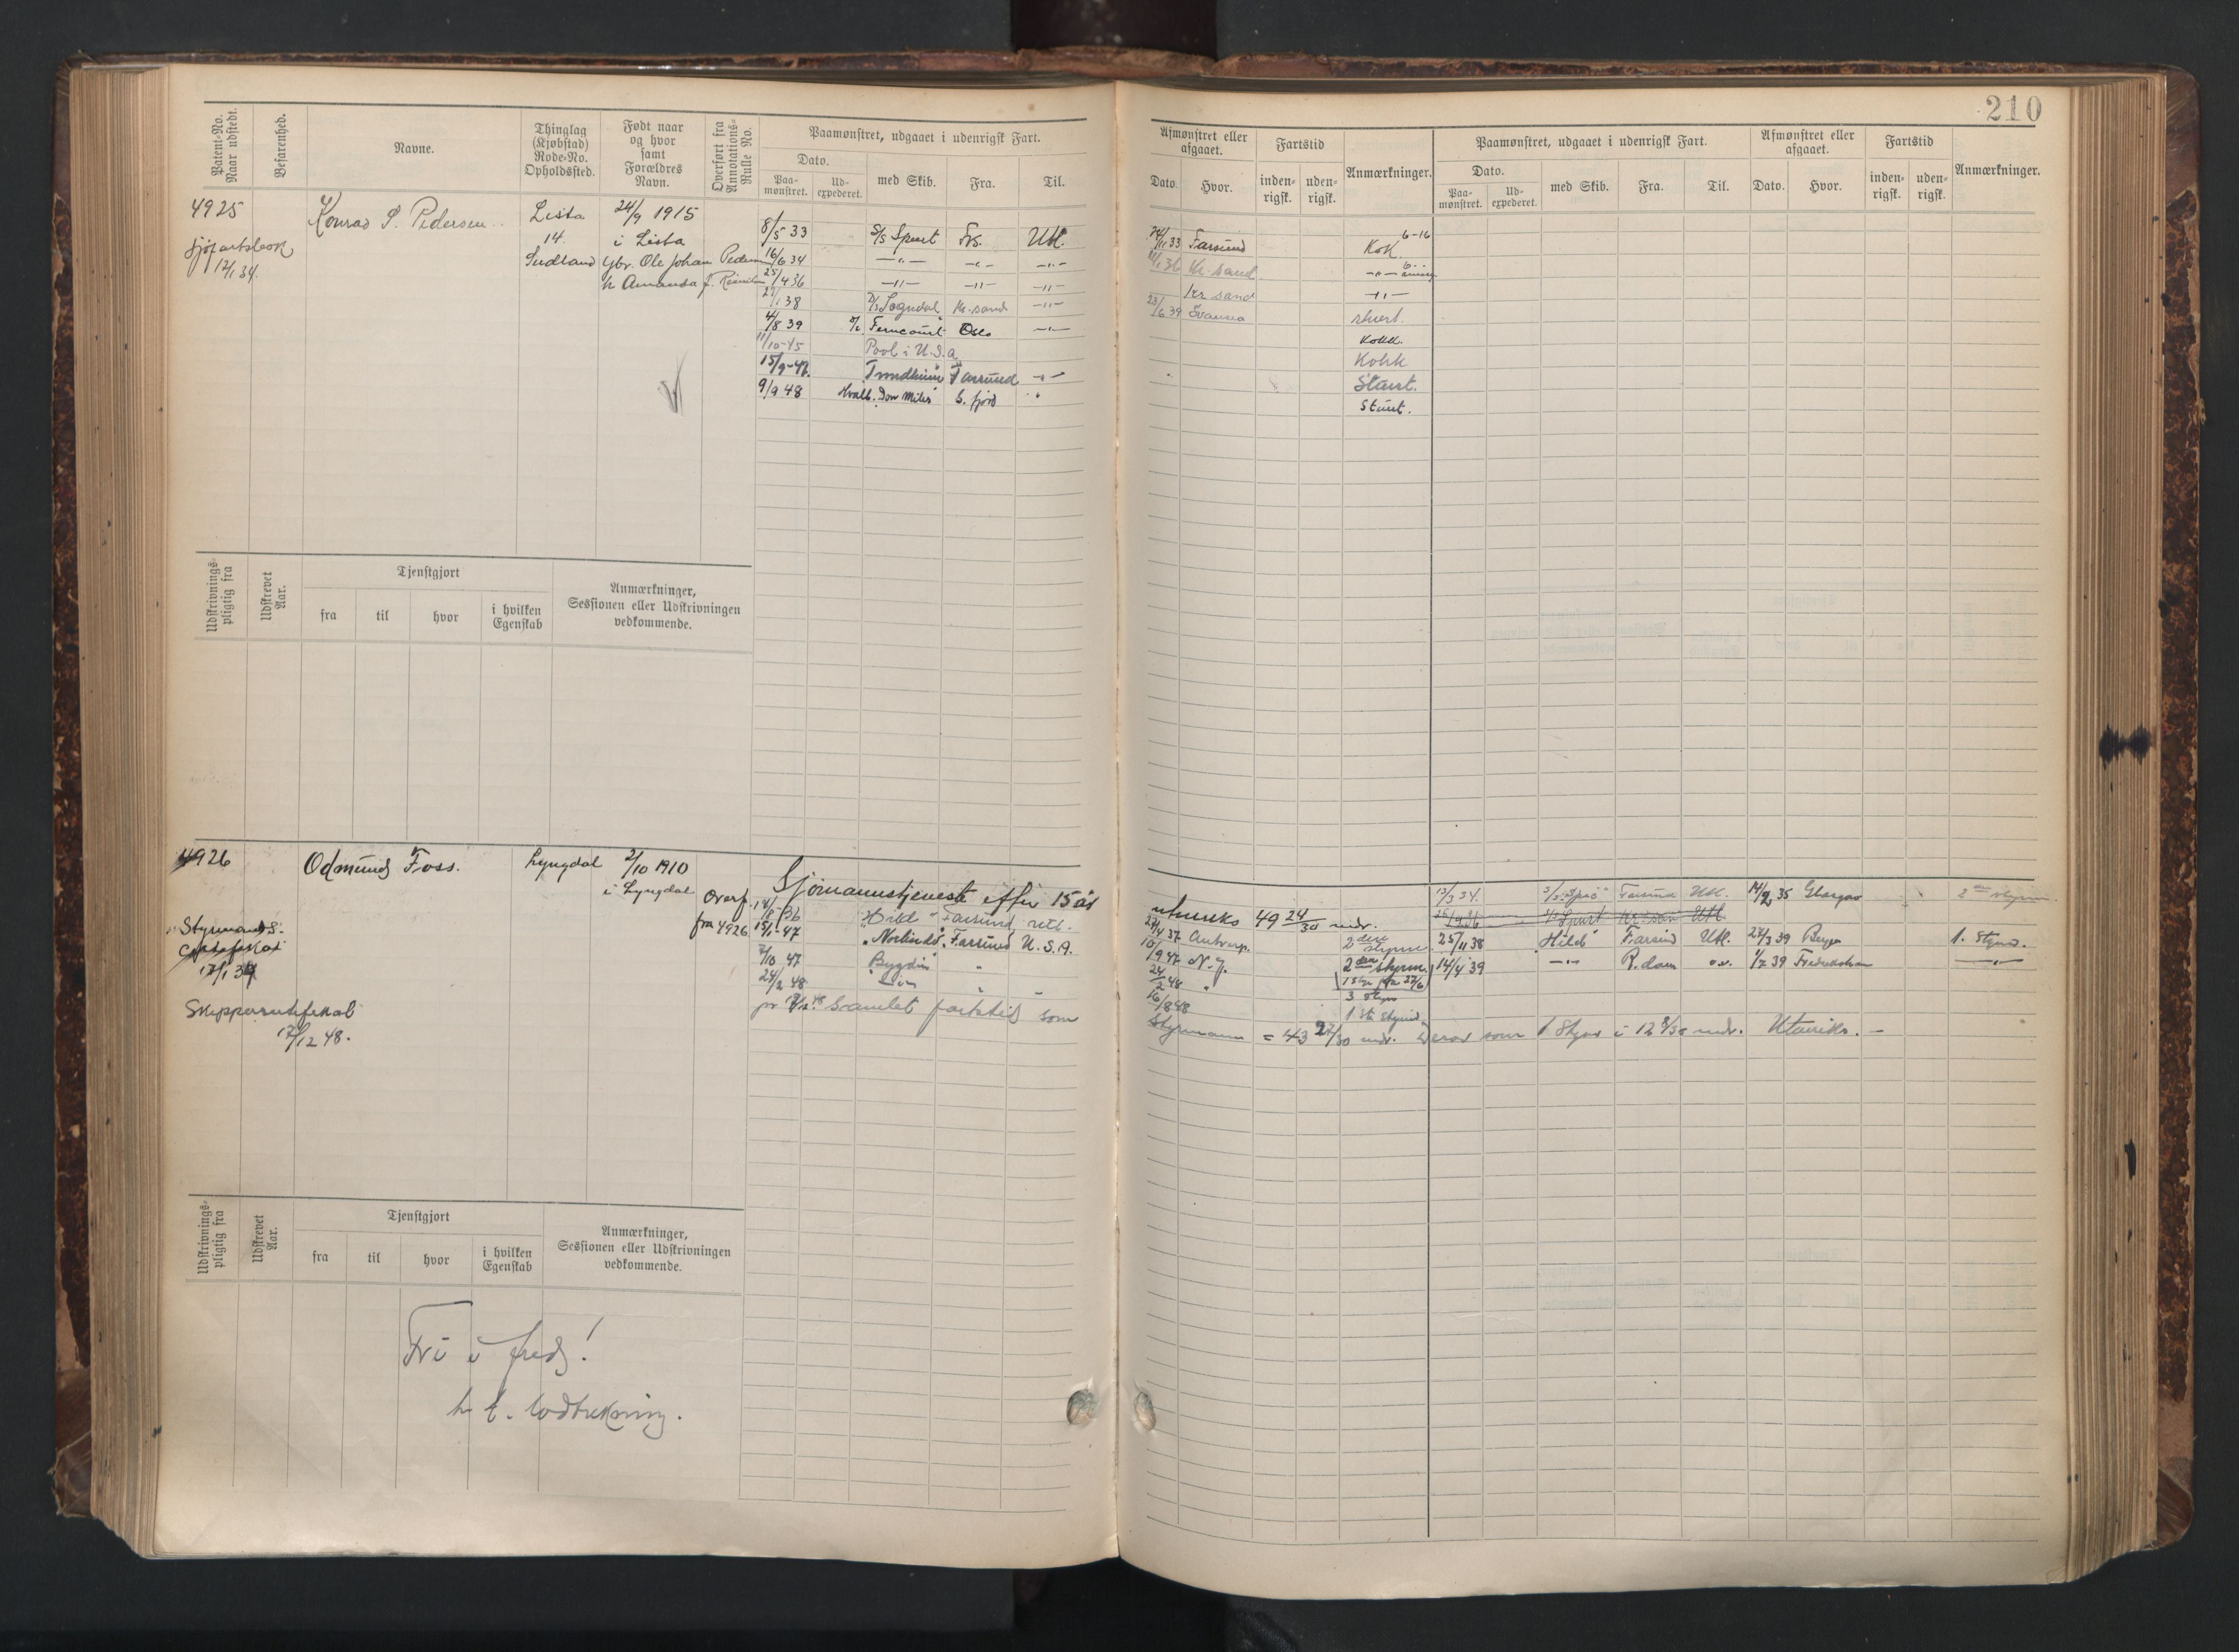 210
Patent-No. Naar udstedt.
Befarenhed.
Navne.
Thinglag (Kjøbstad) Rode-No. Opholdssted.
Født naar og hvor samt Forældres Navn.
Overført fra Annotations-Rulle No.
Paamønstret, udgaaet i udenrigsk Fart.
Dato.
Paa-mønstret. Ud-expederet. med Skib. Fra. Til.
4925
Sjøfartsbok
12/1 34.
Konrad S. Pedersen
Lista
14.
24/9 1915
i Lista
Ole Johan Pedersen
h Amanda f.
8/5 33 S/S Spurt Frs. Utl.
16/6 34 —"— —"— —"—
25/4 36 —"— —"— —"—
/1 38 Sogndal Kr.sand —"—
4/8 39 Ferncourt Oslo —"—
11/10-45 Pool i U.S.a
15/9-47. "Trondheim" Farsund —"—
9/9 48 Hvalk. Don Miles S. fjord "
Udskrivnings-pligtig fra
Udskrevet Aar.
Tjenstgjort
fra til hvor i hvilken Egenskab
Anmærkninger, Sessionen eller Udskrivningen vedkommende.
4926
Odmund Foss.
Lyngdal
2/10 1910
i Lyngdal
Styrmands-
17/1 34
17/12 48.
Overf.
fra 4926
Sjømannstjeneste efter 15 år
"Hild" Farsund utl.
15/1-47 "Norlinda" Farsund U.S.A.
7/10 47 "Bygdin" "
24/2 48 "
Samlet fartstid som
Udskrivnings-pligtig fra
Udskrevet Aar.
Tjenstgjort
fra til hvor i hvilken Egenskab
Anmærkninger, Sessionen eller Udskrivningen vedkommende.
Fri i fred!
h. t. lodtrekning.
Afmønstret eller afgaaet.
Dato. Hvor.
Fartstid
inden-rigsk. uden-rigsk.
Anmærkninger.
Paamønstret, udgaaet i udenrigsk Fart.
Dato.
Paa-mønstret. Ud-expederet. med Skib. Fra. Til.
Afmønstret eller afgaaet.
Dato. Hvor.
Fartstid
inden-rigsk. uden-rigsk.
Anmærkninger.
6-16
24/11 33 Farsund Kok
36 Kr. sand —"—
Kr sand —"—
23/6 39 Svansea stuert.
Kokk.
Kokk
Stuert.
Stuert.
utenriks 49 24/30 mndr.
13/3 34. Farsund Utl. 14/2 35 Glasgow 2den styrm.
S/S Spurt Kr sand Utl
37 Antwerp. 2den styrm. 25/11 38 Hild Farsund Utl. 27/3 39 1. Styrm.
10/9 47 N.Y. 2den styrm. 14/4 39 —"— R.dam 1/7 39 Fredrikshavn —"—
24/2 48 "
3 Styrm
16/8 48 1ste styrm
Styrmann = 43 27/30 mdr. Derav som 1 Styrm i 12 8/30 mndr. Utenriks. —